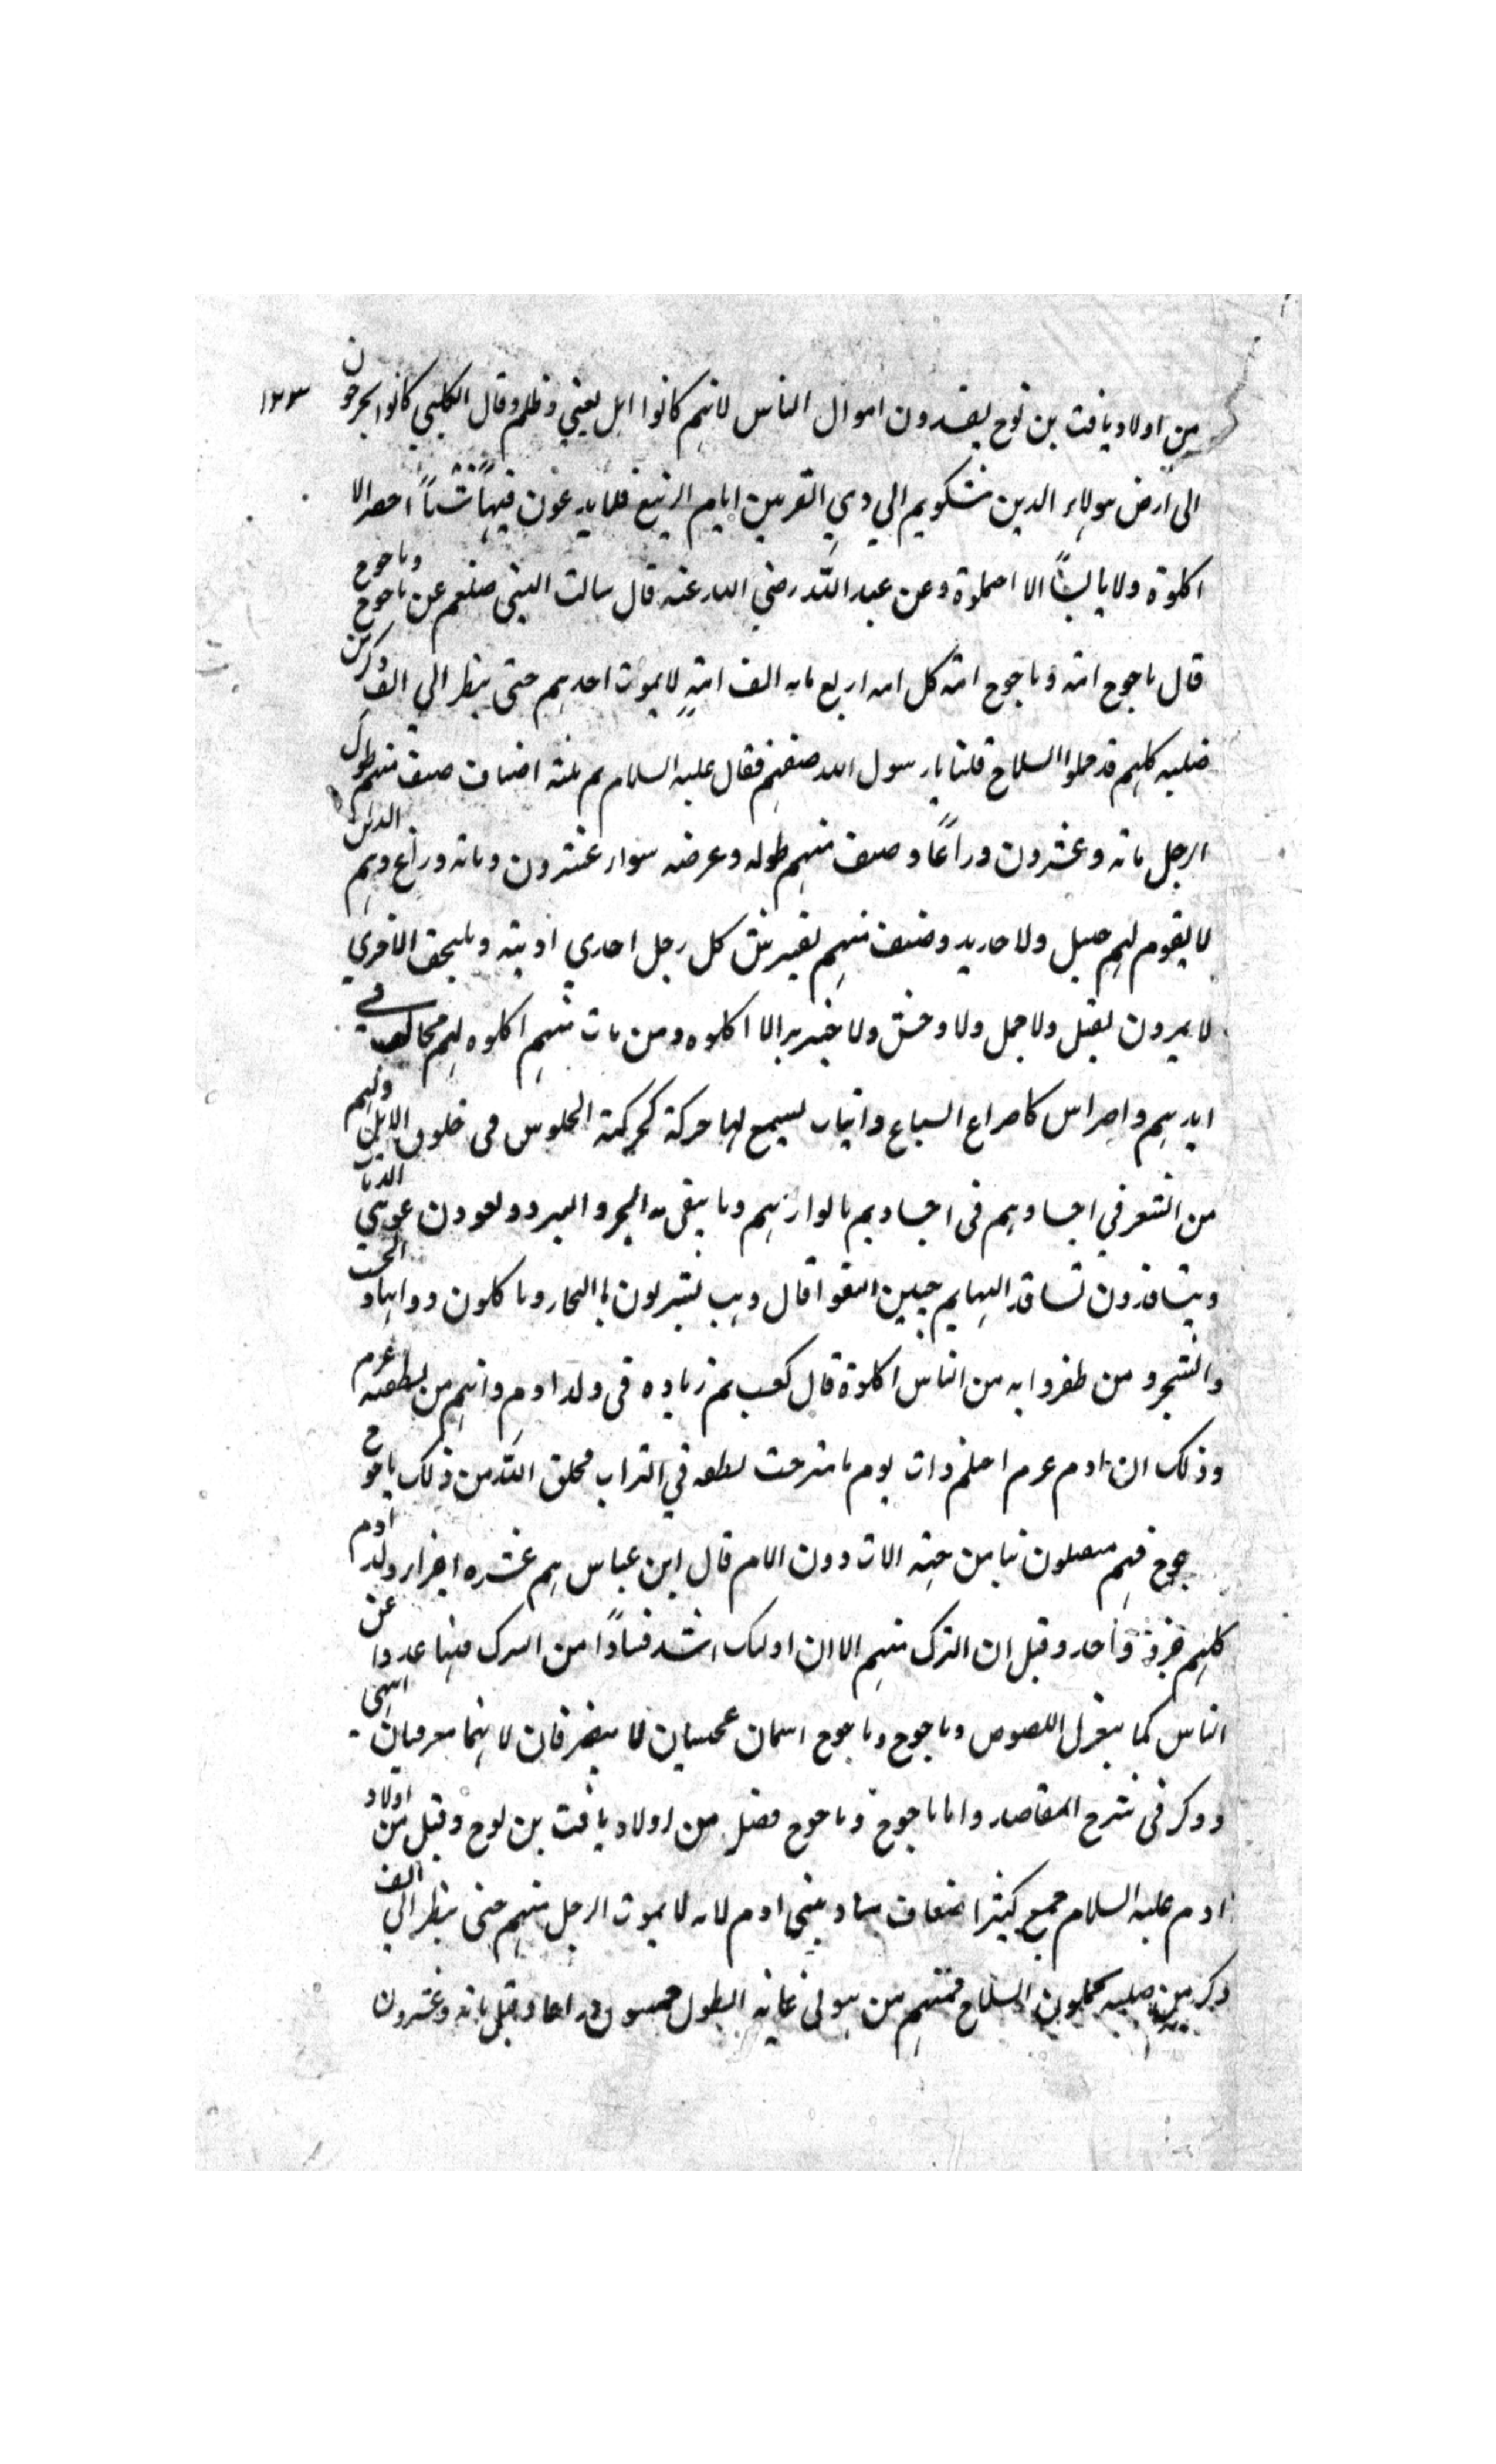 من اولاد يافث بن نوح يفسدون اموال الناس لانهم كانوا اهل بغي و ظلم وقال الكلبي كانوا يخرجون
١٣٣
الى ارض هولاء الذين شكوهم الي ذي القرنين ايام الربيع فلا يدعون فيها شيئاً اخضر الا
اكلوه ولا يابساً الا احملوه وعن عبد الله رضي الله عنه قال سالت النبي صلعم عن ياجوج وماجوج
قال ياجوج امة وماجوج امة كل امة اربع ماية الف امة لا يموت احدهم حتى ينظر الي الف ذكر من
صلبه كلهم قد حملوا السلاح قلنا يا رسول الله صفهم فقال عليه السلام هم ثلثة اصناف صنف منهم طول
الرجل مائة وعشرون ذراعاً وصنف منهم طوله وعرضه سواء عشرون ومائة ذراع وهم الذين
لا يقوم لهم جبل ولا حديد وصنف منهم يفترش كل رجل احدي اذنيه ويلتحف الاخري
لا يمرون بفيل ولا جمل ولا وحش ولا خنزير الا اكلوه ومن مات منهم اكلوه لهم مخالب في
ايديهم واضراس كاضراس السباع وانياب يسمع لها حركة كحركة الجلوس في حلوق الابل ولهم
من الشعر في اجسادهم في اجسادهم ما يواريهم وما يتقى به الحر و البرد و يعوون عوي الذئاب
ويتسافدون تسافد البهايم حيين التقوا قال وهب يشربون ماء البحار وياكلون دوابها و الخشب
والشجر و من ظفروا به من الناس اكلوه قال كعب هم زياده في ولد ادم وانهم من نطفته عرم
وذلك ان ادم عرم احتلم ذات يوم فامتزجت نطفه في التراب فخلق الله من ذلك ياجوج
جوج فهم متصلون بنا من جهة الاب دون الام قال ابن عباس هم عشره اجزاء و ولد ادم
كلهم جزء واحد و قيل ان الترك منهم الا ان اولئك اشد فسادًا من الترك عن
الناس كما ينعزل اللصوص وياجوج وماجوج اسمان عجميان لا ينصرفان لانهما معرفيان انتهى
و ذكر في شرح المقاصد واما ياجوج وماجوج فقيل من اولاد يافث بن نوح وقيل من اولاد
ادم عليه السلام جمع كثير اضعاف ساير بني ادم لانه لا يموت الرجل منهم حتى ينظر الي الف
ذكر من صلبه يحملون السلاح فمنهم من هو في غاية الطول خمسون ذراعا و قيل مائة وعشرون